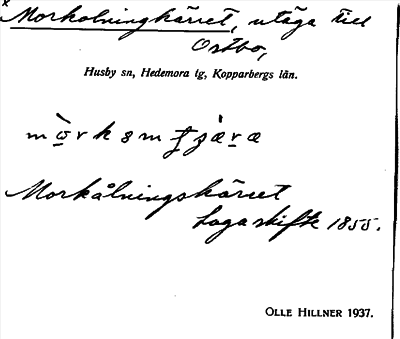 x
Morkolningkärret, utäga till
Östbo,
Husby sn, Hedemora lg, Kopparbergs län.
Morkålningskärret
Laga skifte 1855.
OLLE HILLNER 1937.